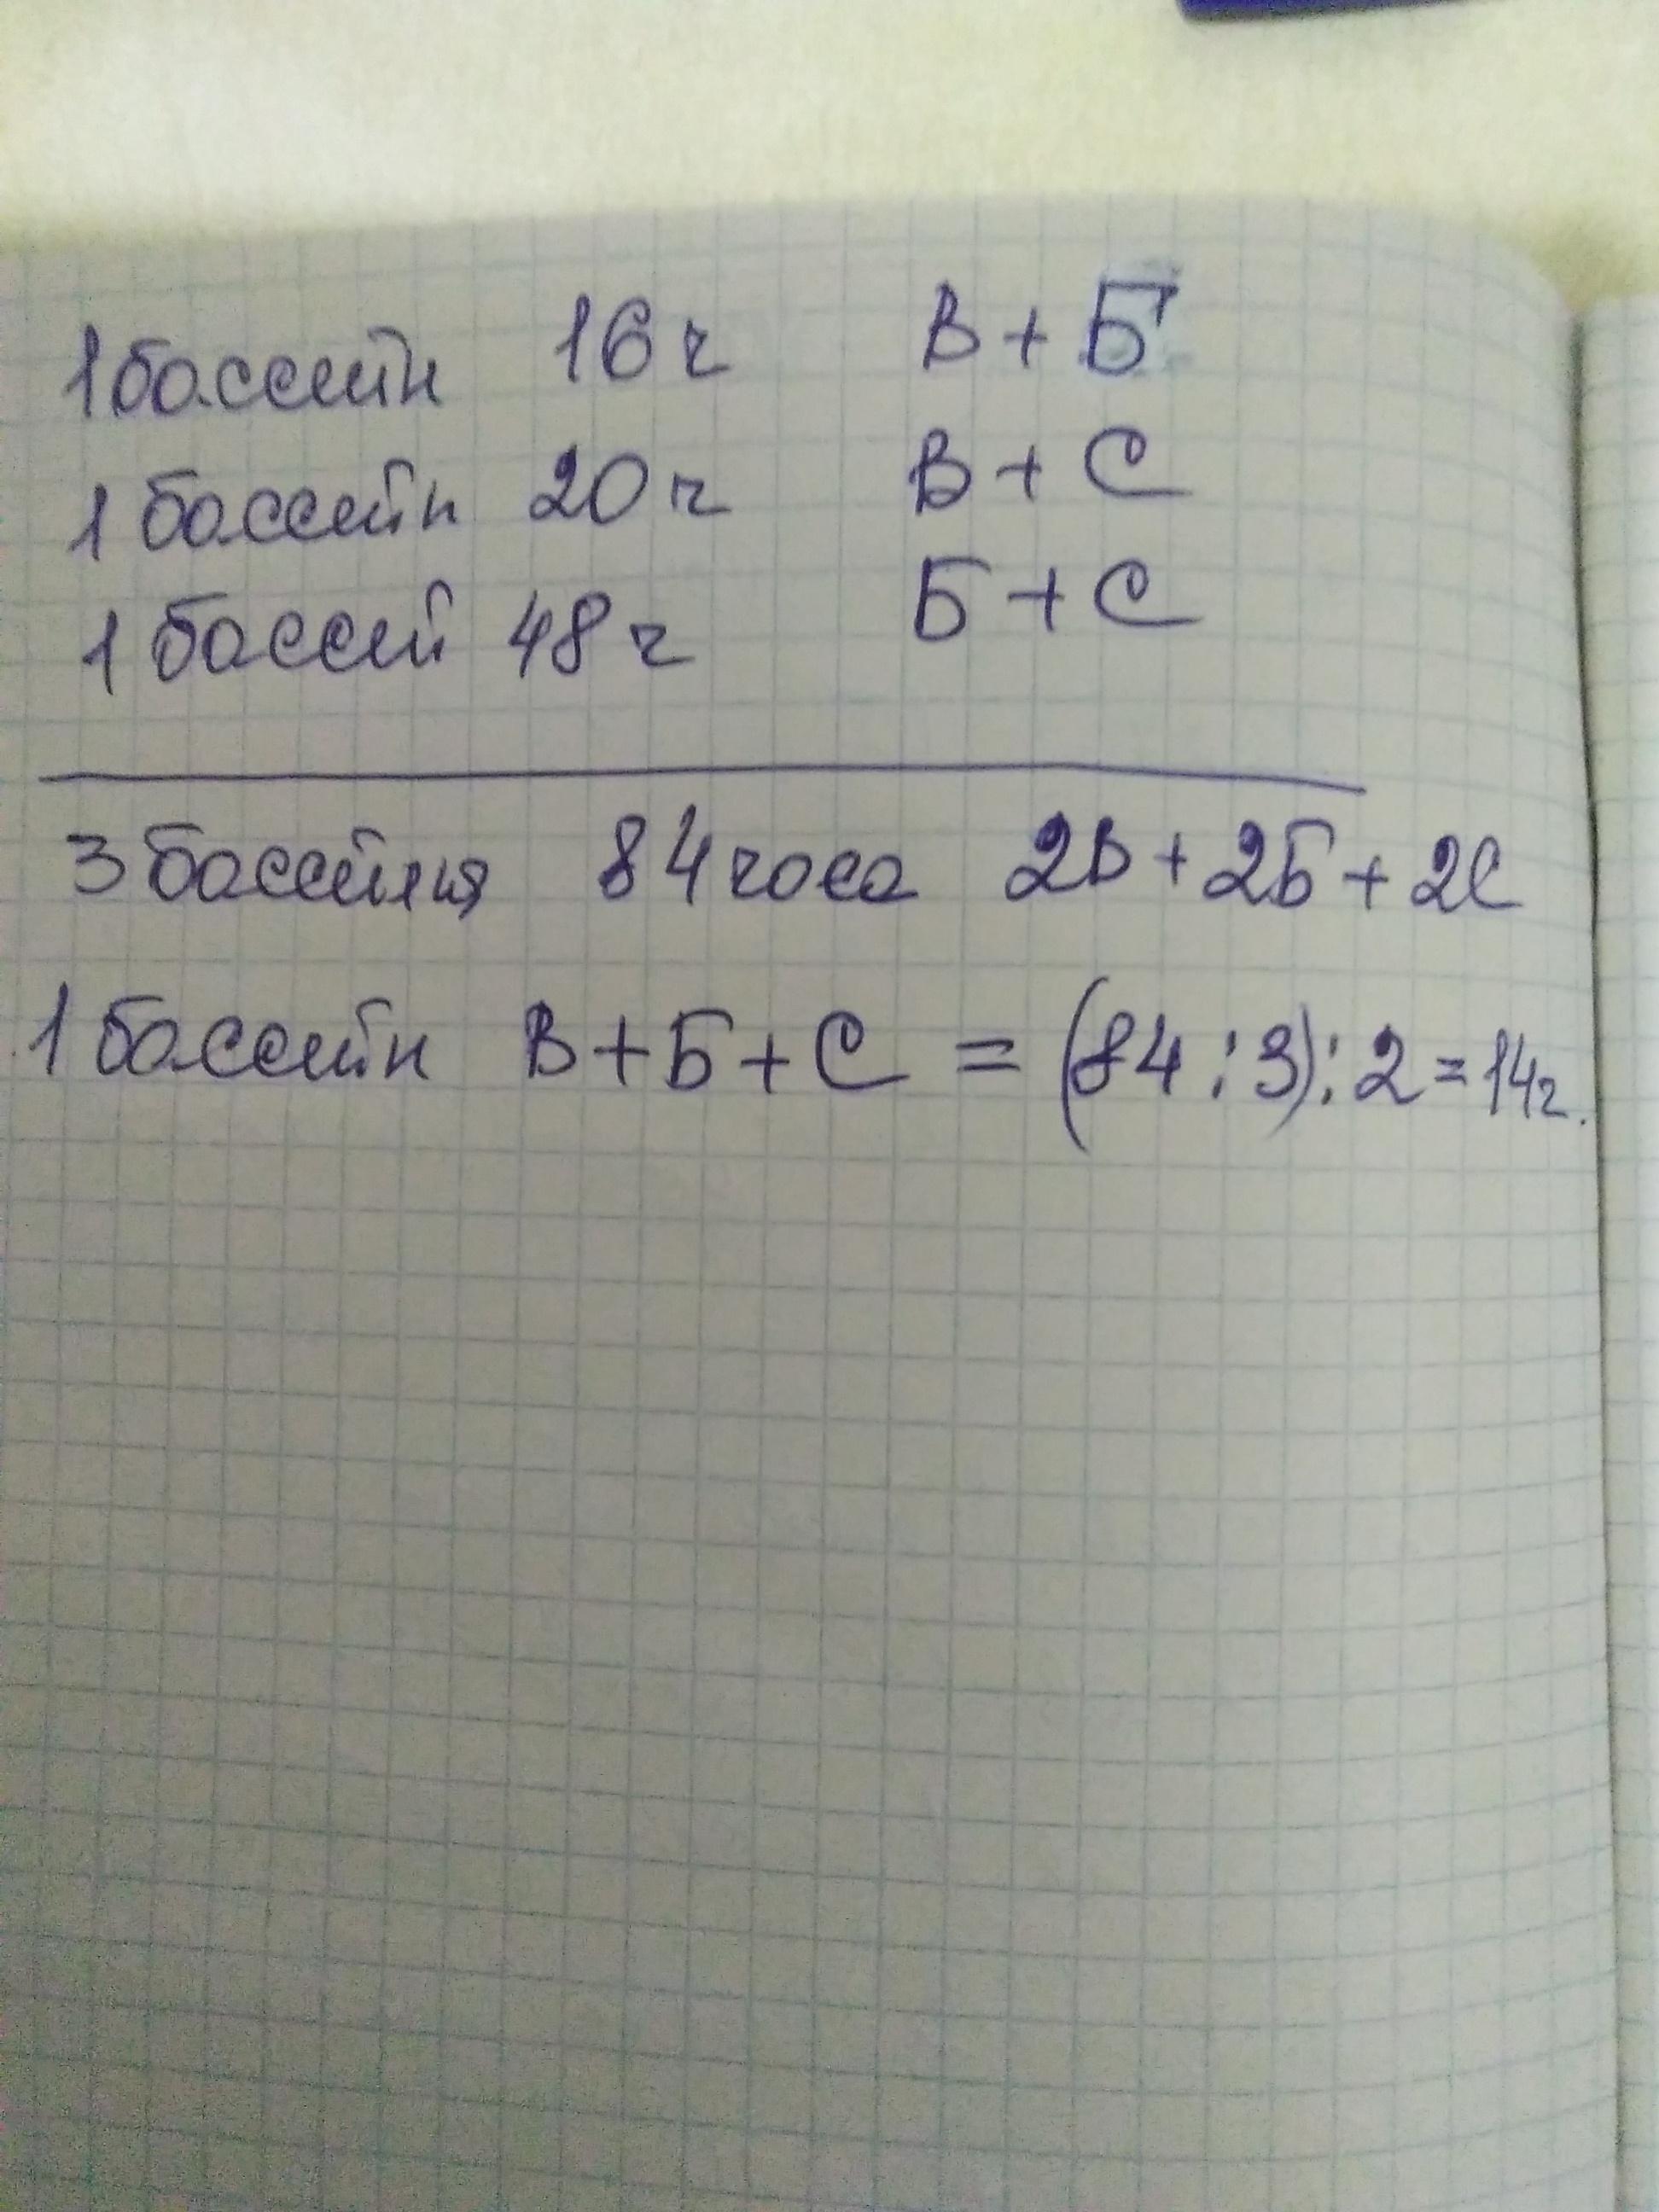 1 бассейн 16 ч В + Б
1 бассейн 20 ч В + С
1 бассей 48 ч Б + С
3 бассейня 84 часа 2В + 2Б + 2С
1 бассейн В + Б + С = (84 : 3) : 2 = 14ч.